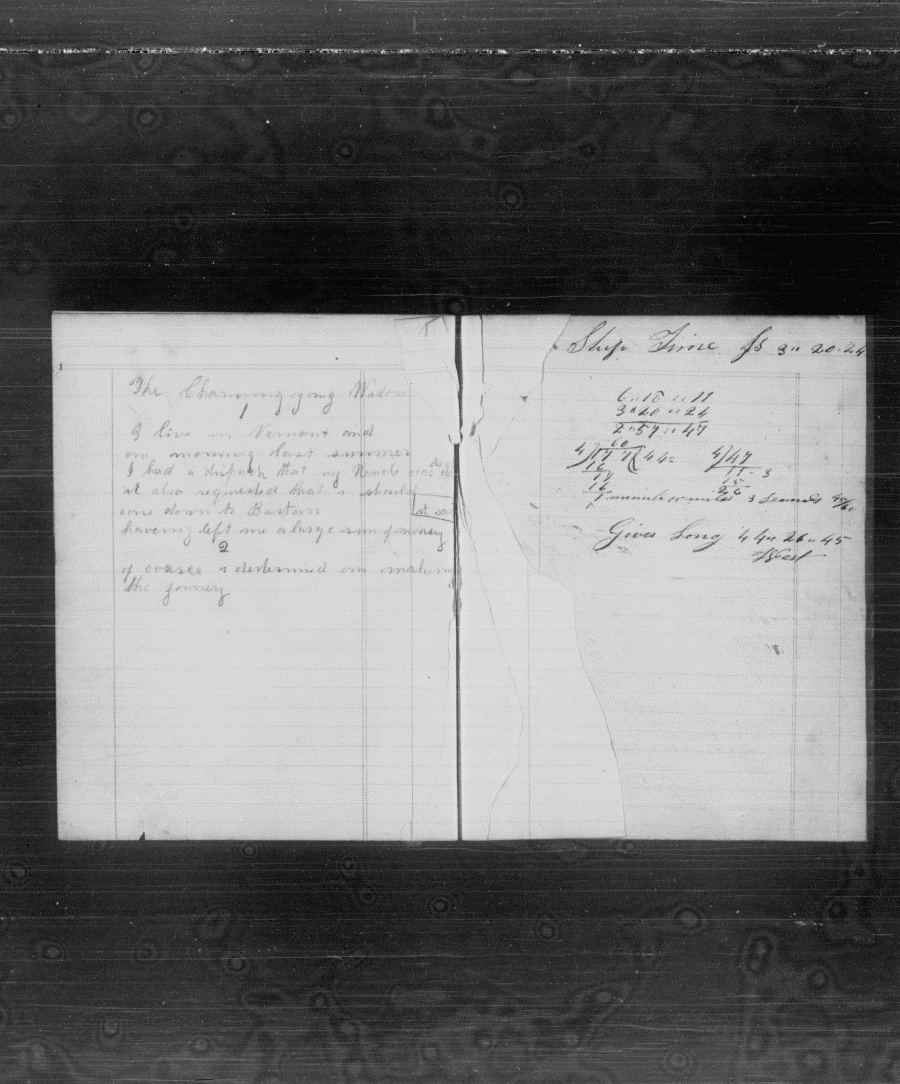 The Charming yong Widow
1
I live in Vermont and
on morning last summer
I had a dispach that my Uncle was
it also requested that i should
come down to Bastom
haveing left me a large sum of money
2
of coarse i determined on makeing
the jonney
Ship Time Is 3" 20.24
6 " 18 " 11
3 " 20 " 24
2 " 57 " 47
60
4/177/44=
16
17
16
1
4/47
11-3
15
minute or miles 3 Seconds
Gives Long 44" 26" 45
West